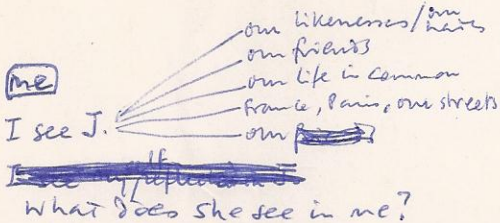 our likenesses/our
our friends
me
our life in common
I see J.
France, Paris, our streets
our
What does she see in me?